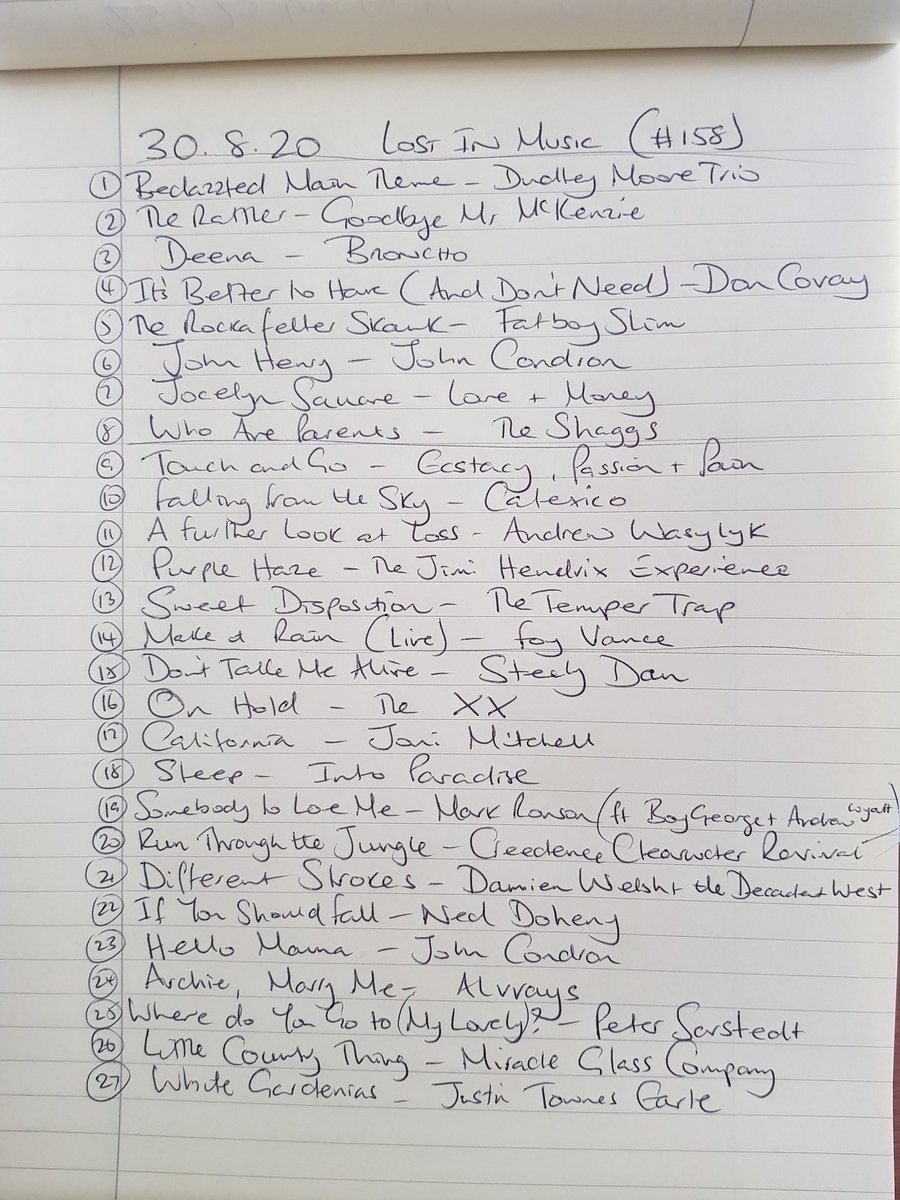 30.8.20 Lost In Music (#158)
① Bedazzled Main Theme - Dudley Moore Trio
② The Rattler - Goodbye Mr McKenzie
③ Deena - Broncho
④ It's Better to Have (And Don't Need) - Don Covay
⑤ The Rockafeller Skank - Fatboy Slim
⑥ John Henry - John Condron
⑦ Jocelyn Square - Love + Money
⑧ Who Are Parents - The Shaggs
⑨ Touch and Go - Ecstacy, Passion + Pain
⑩ Falling from the Sky - Calexico
⑪ A further Look at Loss - Andrew Wasylyk
⑫ Purple Haze - The Jimi Hendrix Experience
⑬ Sweet Disposition - The Temper Trap
⑭ Make it Rain (Live) - Foy Vance
⑮ Don't Take Me Alive - Steely Dan
⑯ On Hold - The XX
⑰ California - Joni Mitchell
⑱ Sleep - Into Paradise
⑲ Somebody to Love Me - Mark Ronson (ft Boy George + Andrew Wyatt)
⑳ Run Through the Jungle - Creedence Clearwater Revival
㉑ Different Strokes - Damien Welsh + the Decadent West
㉒ If You Should fall - Ned Doheny
㉓ Hello Mama - John Condron
㉔ Archie, Marry Me - Alvvays
㉕ Where do You Go to (My Lovely)? - Peter Sarstedt
㉖ Little Country Thing - Miracle Glass Company
㉗ White Gardenias - Justin Townes Earle